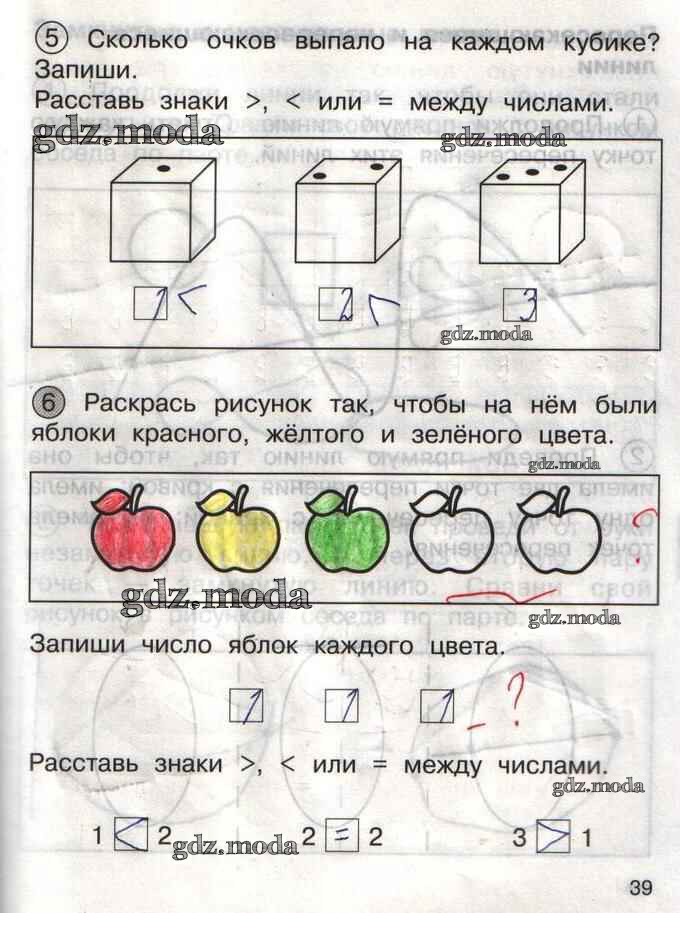 5 Сколько очков выпало на каждом кубике?
Запиши.
Расставь знаки >, < или = между числами.
gdz.moda gdz.moda
1 < 2 < 3
gdz.moda
6 Раскрась рисунок так, чтобы на нём были
яблоки красного, жёлтого и зелёного цвета.
gdz.moda
?
gdz.moda
gdz.moda
Запиши число яблок каждого цвета.
1 1 1 - ?
Расставь знаки >, < или = между числами.
gdz.moda
1 < 2 2 = 2 3 > 1
gdz.moda
39